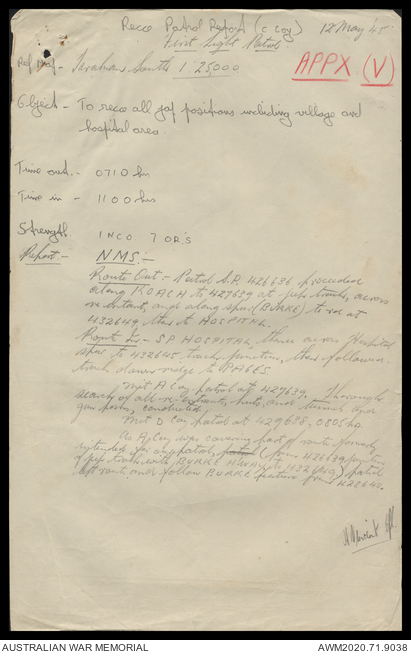 Recce Patrol Report (C Coy) 12 May 45
First Light Patrol
Ref Map - Tarakan South 1:25000
APPX (V)
Object - To recce all Jap positions including village and
hospital area.
Time out - 0710 hrs
Time in - 1100 hrs
Strength 1 NCO 7 OR's
Report:- NMS:-
Route Out:- Patrol S.P. 426636 proceeded
along ROACH to 427639 at jeep track, across
re-entrant, and along spur (BURKE) to at
432649, then to HOSPITAL.
Route In:- SP HOSPITAL, thence across Hospital
spur to 432645, track junction, then followed
track down ridge to PAGES.
Met A Coy patrol at 427639. Thorough
search of all re-entrants, huts, and tunnels and
gun posns, conducted.
Met D Coy patrol at 429638, 0805 hrs.
As A Coy was covering part of route formerly
intended for my patrol, (from 426639 junction
of jeep track with BURKE H'WAY to 432649) patrol
left route and follow BURKE feature from 428648.
Cpl
AUSTRALIAN WAR MEMORIAL
AWM2020.71.9038